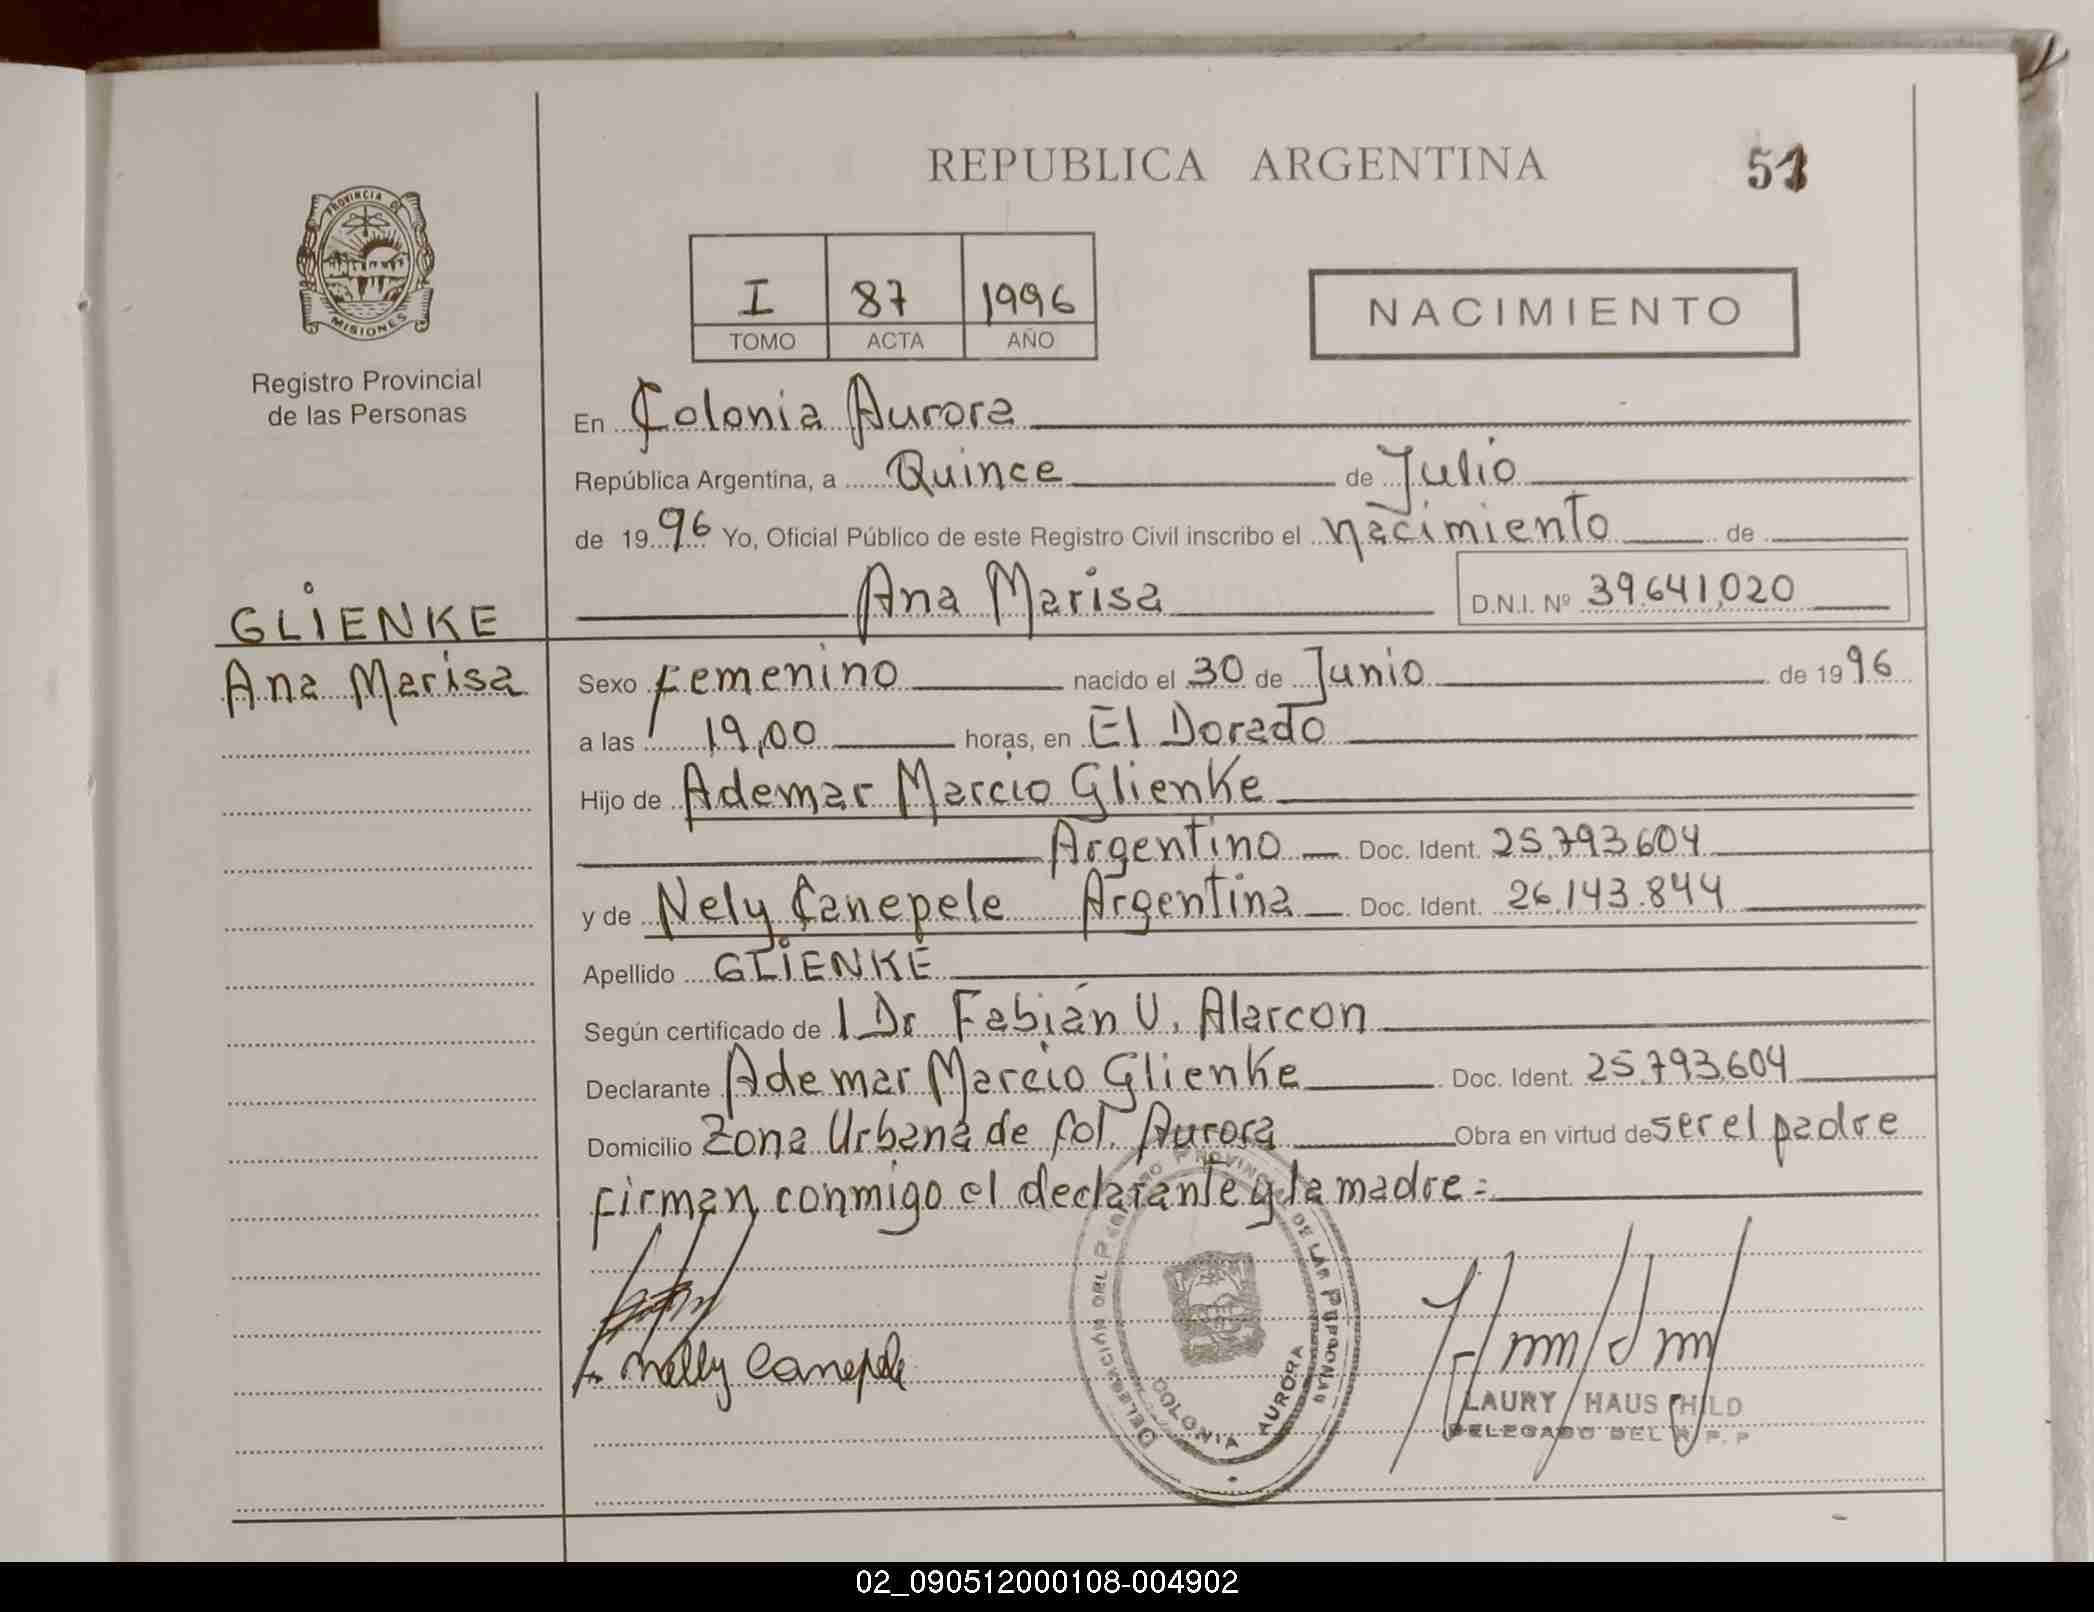 REPUBLICA ARGENTINA
PROVINCIA DE
MISIONES
Registro Provincial
de las Personas
I 87 1996
TOMO ACTA AÑO
NACIMIENTO
En Colonia Aurora
República Argentina, a Quince de Julio
de 1996 Yo, Oficial Público de este Registro Civil inscribo el nacimiento de
Ana Marisa D.N.I. Nº 39.641.020
GLIENKE
Ana Marisa
Sexo Femenino nacido el 30 de Junio de 1996
a las 19,00 horas, en El Dorado
Hijo de Ademar Marcio Glienke
Argentino Doc. Ident. 25.793.604
y de Nely Canepele Argentina Doc. Ident. 26.143.844
Apellido GLIENKE
Según certificado de l Dr Fabián V. Alarcon
Declarante Ademar Marcio Glienke Doc. Ident. 25.793.604
Domicilio Zona Urbana de Col. Aurora Obra en virtud de ser el padre
firman conmigo el declarante y la madre =
Nelly Canepele
DE LAS PERSONAS
COLONIA AURORA
LAURY HAUSCHILD
DELEGADO DEL R. P. P
02_090512000108-004902